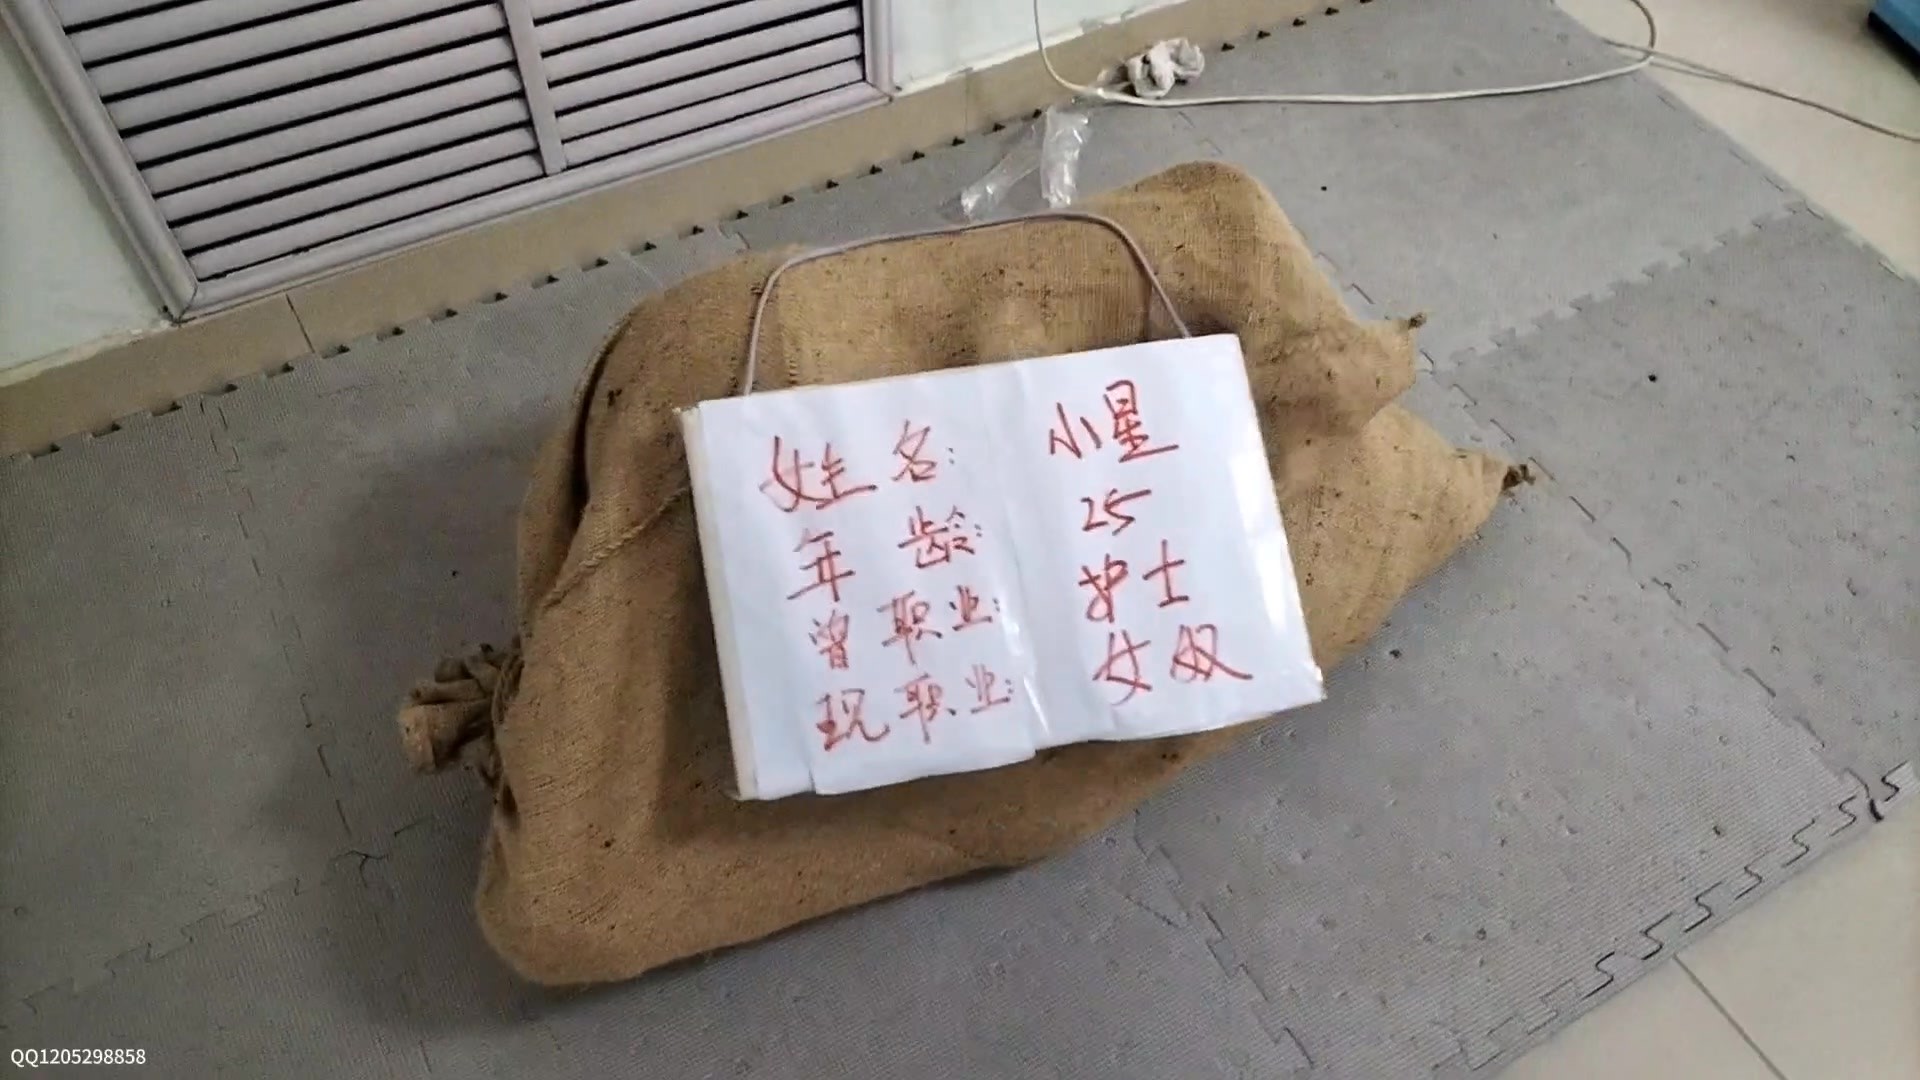 姓名: 小星
年龄: 25
曾职业: 护士
现职业: 女奴
QQ1205298858